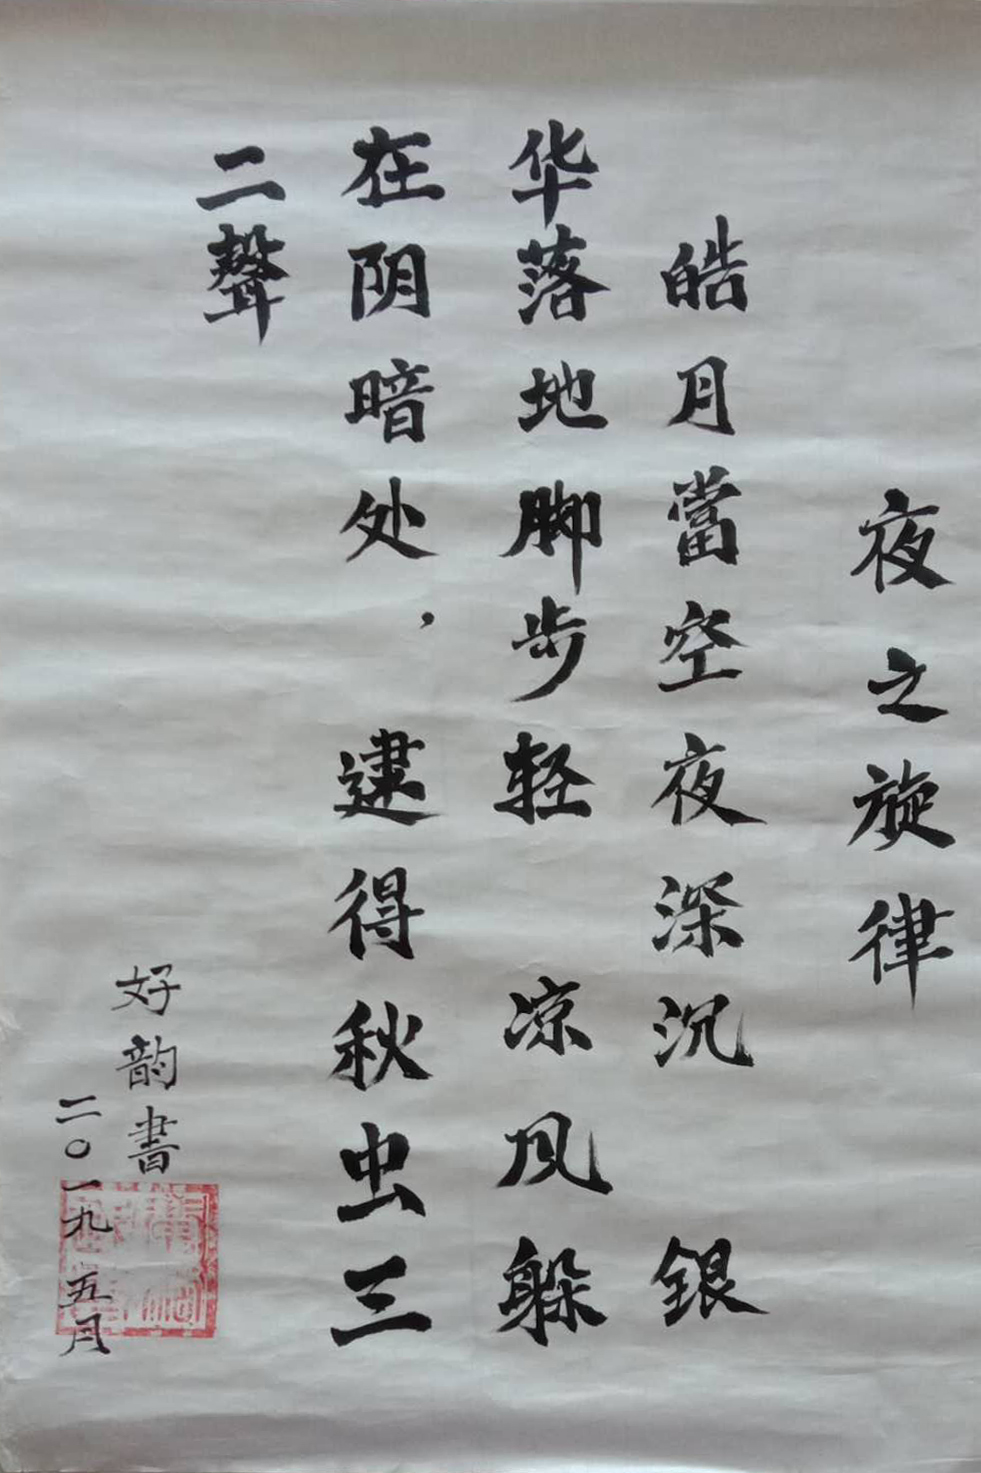 夜之旋律
皓月當空夜深沉 银
华落地脚步轻 凉风躲
在阴暗处，逮得秋虫三
二聲
好韵書
二〇一九 五月